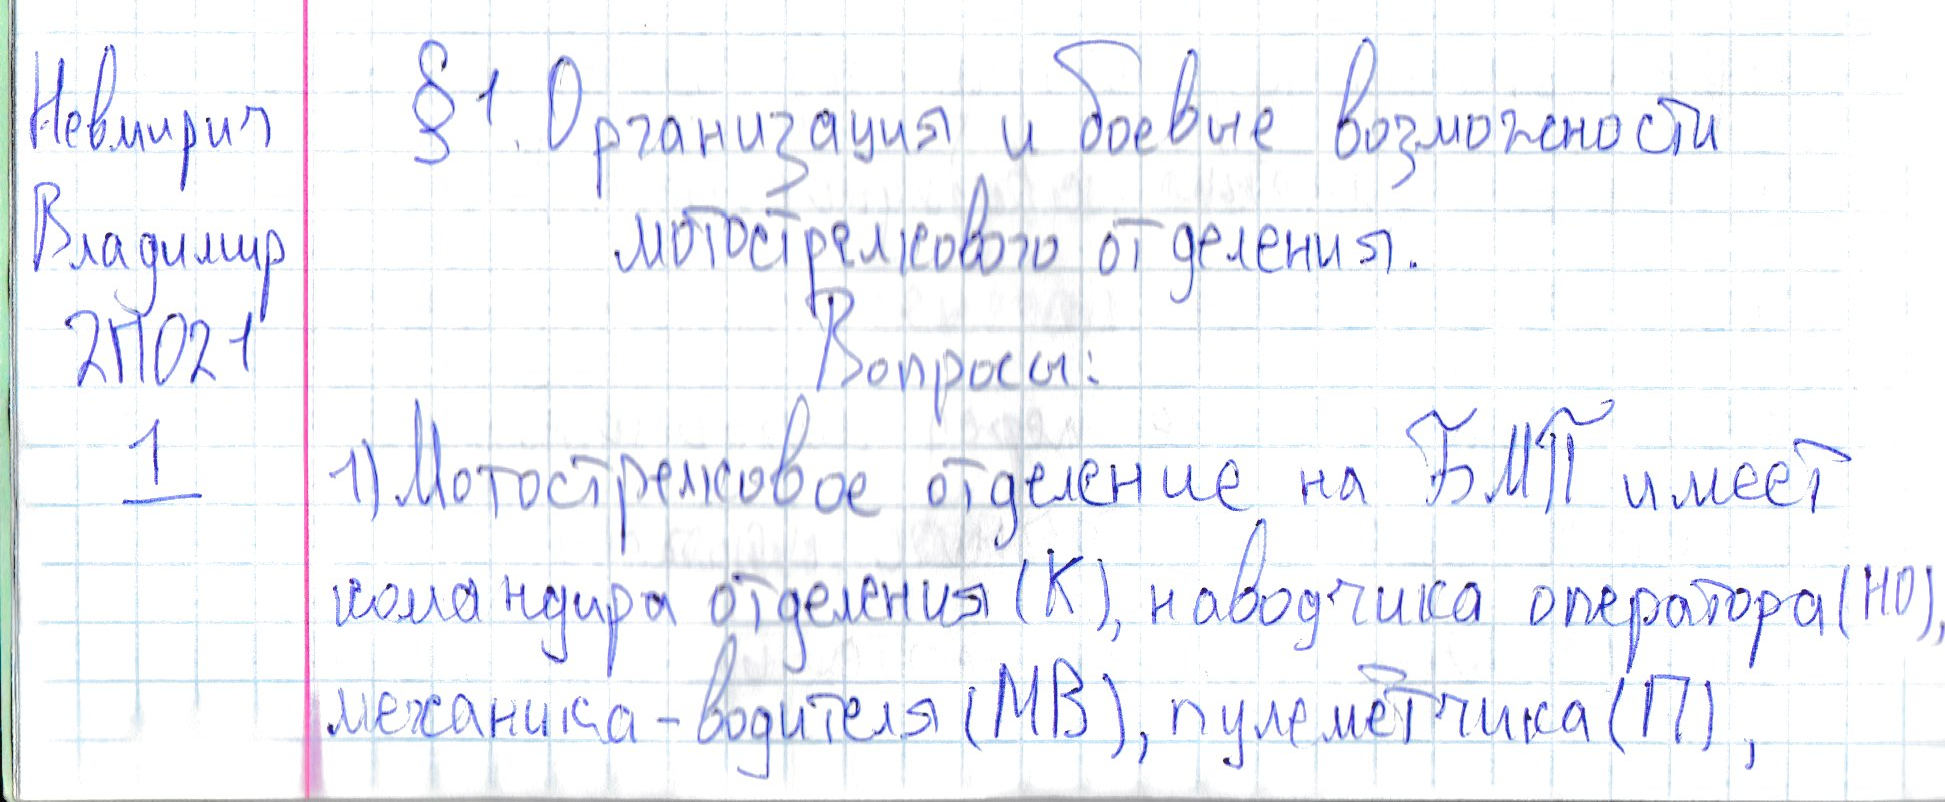 Невмирич
Владимир
2П021
1
§1. Организация и боевые возможности
мотострелкового отделения.
Вопросы:
1) Мотострелковое отделение на БМП имеет
командира отделения (К), наводчика оператора (НО),
механика-водителя (МВ), пулемётчика (П),